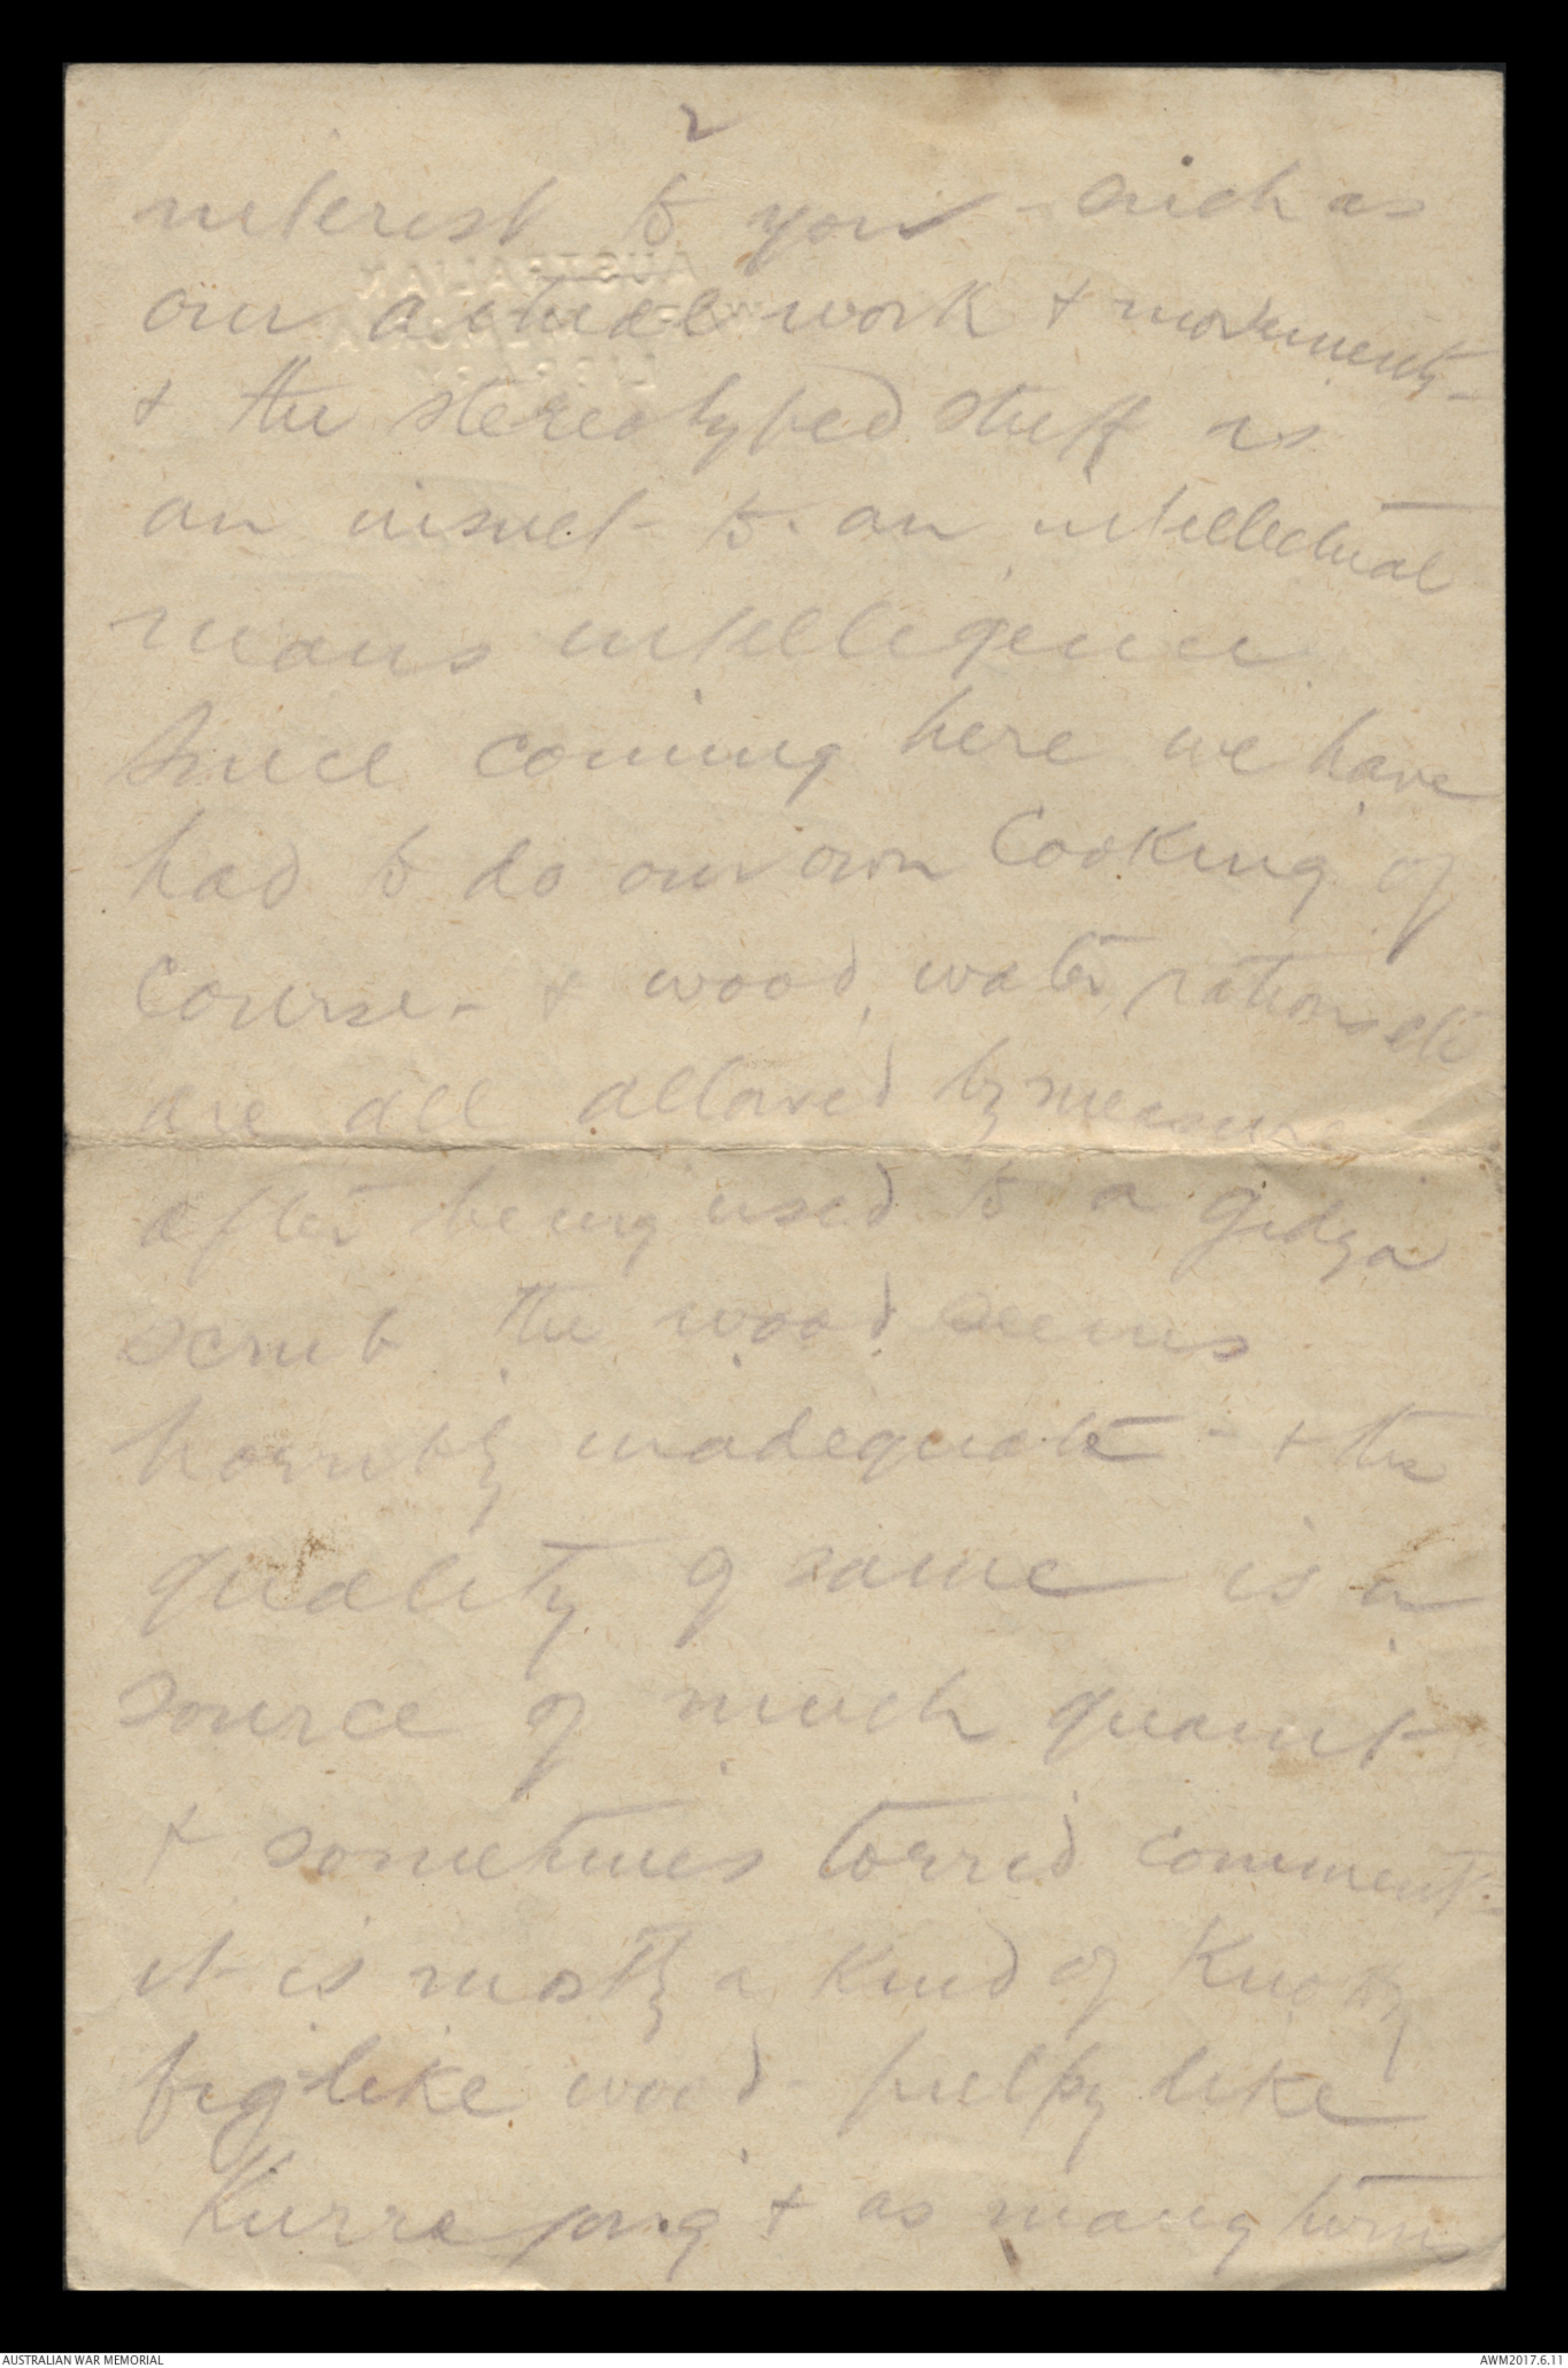 2
interest to you - such as
our actual work + movements -
+ the stereotyped stuff is
an insult to an intellectual
mans intelligence.
Since coming here we have
had to do our own Cooking of
course - + wood, water, rations etc
are all allowed by measure
after being used to a gidya
scrub the wood seems
horribly inadequate - + the
quality of same is a
source of much quaint
+ sometimes torrid comment -
it is mostly a kind of Knotty
fig-like wood - pulpy like
Kurrajong + as many
AUSTRALIAN
WAR MEMORIAL
LIBRARY
AUSTRALIAN WAR MEMORIAL
AWM2017.6.11